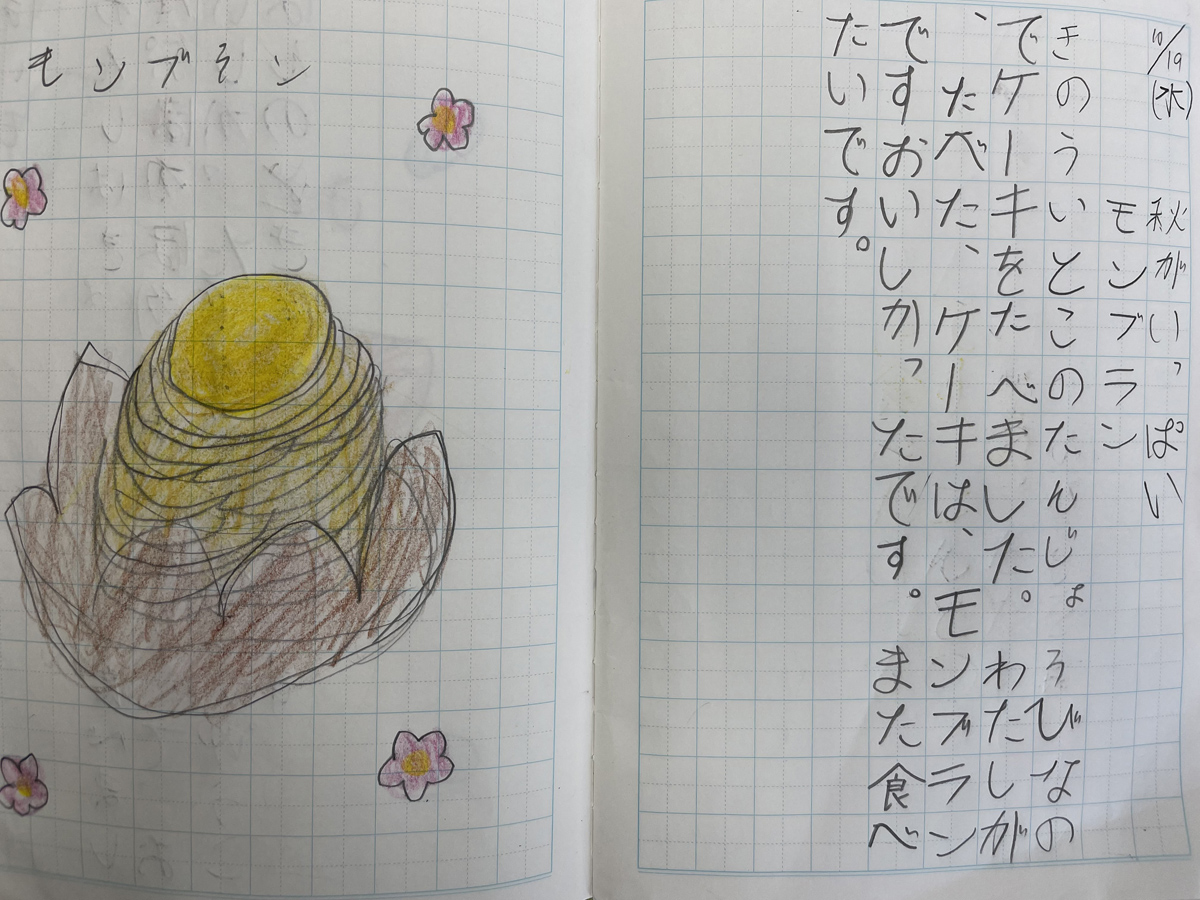 10/19(水) 秋がいっぱい
モンブラン
きのういとこのたんじょうびなの
でケーキをたべました。わたしが
、たべた、ケーキは、モンブラン
ですおいしかったです。また食べ
たいです。
モンブラン